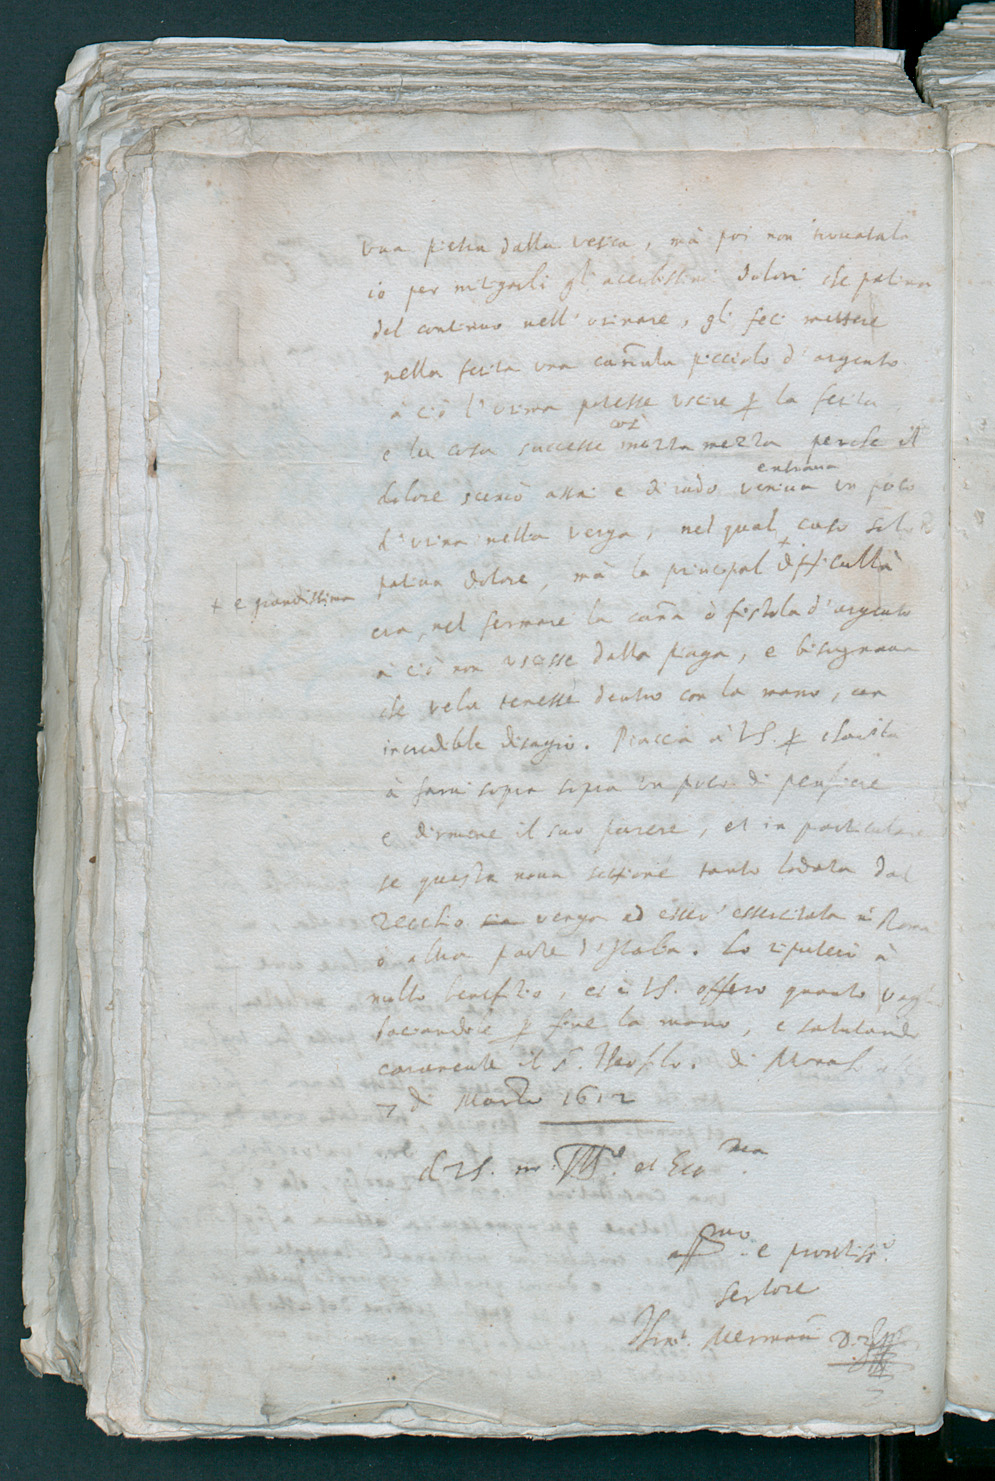 una pietra dalla vesica, mà poi non trovatala
io per mitigarli gl'acerbissimi dolori che pativa
del continuo nell'orinare, gli feci mettere
nella ferita una cañula picciola d'argento
à ciò l'urina potesse uscire ꝑ la ferita,
e la cosa successe così mezza mezza perche il
dolore scemò assai e di rado veniva entrava un poco
d'urina nella verga, nel qual caso solo
pativa dolore, mà la principal + difficultà
+ e grandissima
era, nel fermare la cana ò fistola d'argento
à ciò non uscisse dalla piaga, e bisognava
che vela tenesse dentro con la mano, con
incredibile disagio. Piaccia à VS. ꝑ charità
à farvi sopra sopra un poco di pensiere
e dirmene il suo parere, et in particulare
se questa nova settione tanto lodata dal
Zecchio sia venga ad esser' essercitata à Roma
ò altra parte d'Italia. Lo riputerò à
molto benefitio, et à VS. offero quanto vaglio
baciandole ꝑ fine la mano, e salutando
caramente il S. Theofilo. di Monaco
7 di Marzo 1612
di VS. m. Ill.e et Ecc.ma
aff.mo e prontiss.o
servitore
Thom. Mermañ D.